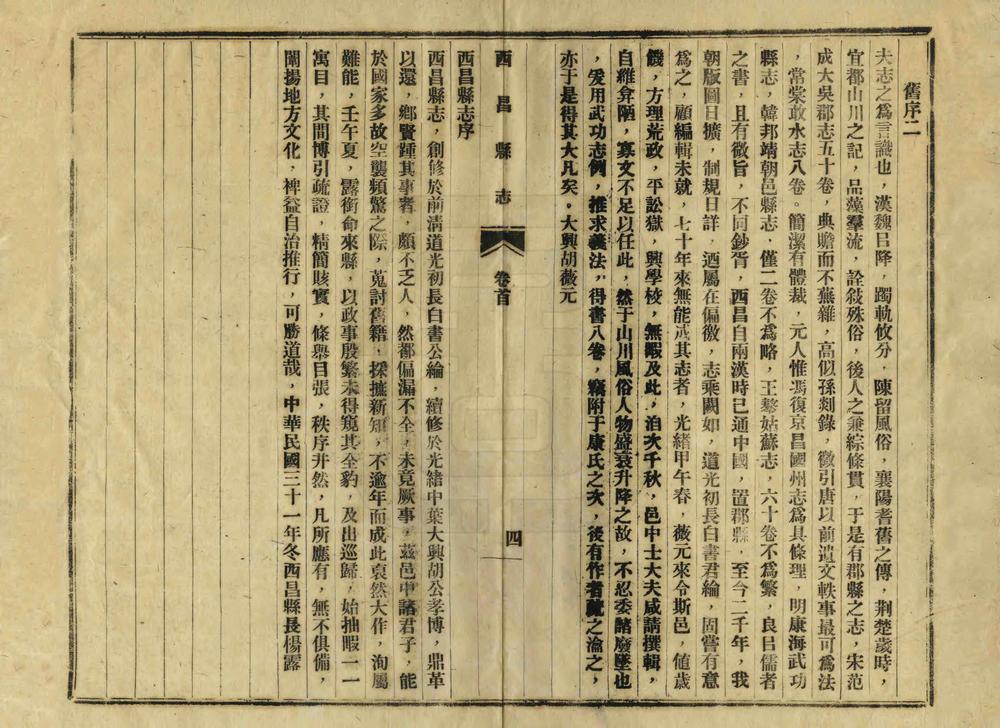 舊序二
夫志之爲言識也，漢魏㠯降，躅軌攸分，陳留風俗，襄陽耆舊之傳，荆楚歲時，
宜都山川之記，品藻羣流，詮敍殊俗，後人之兼綜條貫，于是有郡縣之志，宋范
成大吳郡志五十卷，典贍而不蕪雜，高似孫剡錄，徵引唐以前遺文軼事最可爲法
，常棠敢水志八卷。簡潔有體裁，元人惟馮復京昌國州志爲具條理　明康海武功
縣志，韓邦靖朝邑縣志，僅二卷不爲略，王鏊姑蘇志，六十卷不爲繁，良㠯儒者
之書，且有微旨，不同鈔胥，西昌自兩漢時已通中國，置郡縣，至今二千年，我
朝版圖日擴，制規日詳，迺屬在偏徼，志乘闕如，道光初長白書君綸，固嘗有意
爲之，顧編輯未就，七十年來無能成其志者，光緒甲午春，薇元來令斯邑，値歲
饑，方理荒政，平訟獄，興學校，無暇及此，洎次千秋，邑中士大夫咸請撰輯，
自維弇陋，寡文不足以任此，然于山川風俗人物盛衰升降之故，不忍委諸廢墜也
，爰用武功志例，推求義法，得書八卷，竊附于康氏之次，後有作者疏之瀹之，
亦于是得其大凡矣。大興胡薇元
西昌縣志
卷首
四
西昌縣志序
西昌縣志，創修於前淸道光初長白書公綸，續修於光緒中葉大興胡公孝博，鼎革
以還，鄉賢踵其事者，頗不乏人，然都偏漏不全，未竟厥事，茲邑中諸君子，能
於國家多故空襲頻驚之際，蒐討舊籍，採摭新知，不逾年而成此裒然大作，洵屬
難能，壬午夏，露銜命來縣，以政事殷繁未得窺其全豹，及出巡歸，始抽暇一一
寓目，其間博引疏證，精簡賅實，條舉目張，秩序井然，凡所應有，無不俱備，
闡揚地方文化，裨益自治推行，可勝道哉，中華民國三十一年冬西昌縣長楊露